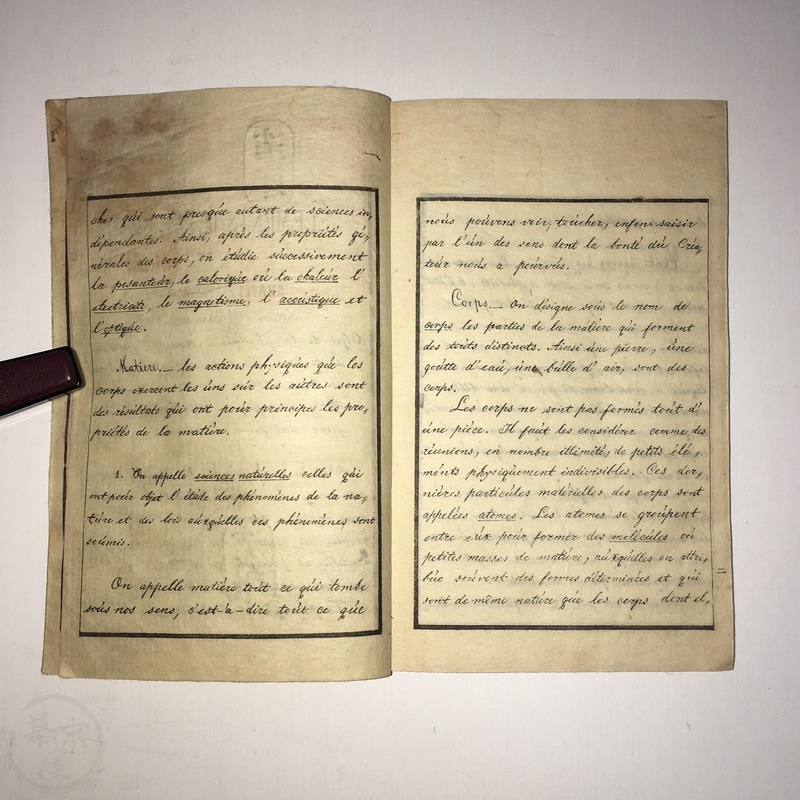 ches qui sont presque autant de sciences in,
dépendantes. Ainsi, après les propriétés gé,
nérales des corps, on étudie successivement
la pesanteur, le calorique ou la chaleur l'
électricité, le magnétisme, l'acoustique et
l'optique.
Matière.— les actions physiques que les
corps exercent les uns sur les autres sont
des résultats qui ont pour principes les pro,
priétés de la matière.
1. On appelle sciences naturelles celles qui
ont pour objet l'étude des phénomènes de la na,
ture et des lois auxquelles ces phénomènes sont
soumis.
On appelle matière tout ce qui tombe
sous nos sens, c'est-à-dire tout ce que
nous pouvons voir, toucher, enfin saisir
par l'un des sens dont la bonté du Créa,
teur nous a pourvus.
Corps.— On désigne sous le nom de
corps les parties de la matière qui forment
des touts distincts. Ainsi une pierre, une
goutte d'eau, une bulle d'air, sont des
corps.
Les corps ne sont pas formés tout d'
une pièce. Il faut les considérer comme des
réunions, en nombre illimité, de petits élé,
ments physiquement indivisibles. Ces der,
nières particules matérielles des corps sont
appelées atomes. Les atomes se groupent
entre eux pour former des molécules ou
petites masses de matière, auxquelles on attri,
bue souvent des formes déterminées et qui
sont de même nature que les corps dont el,